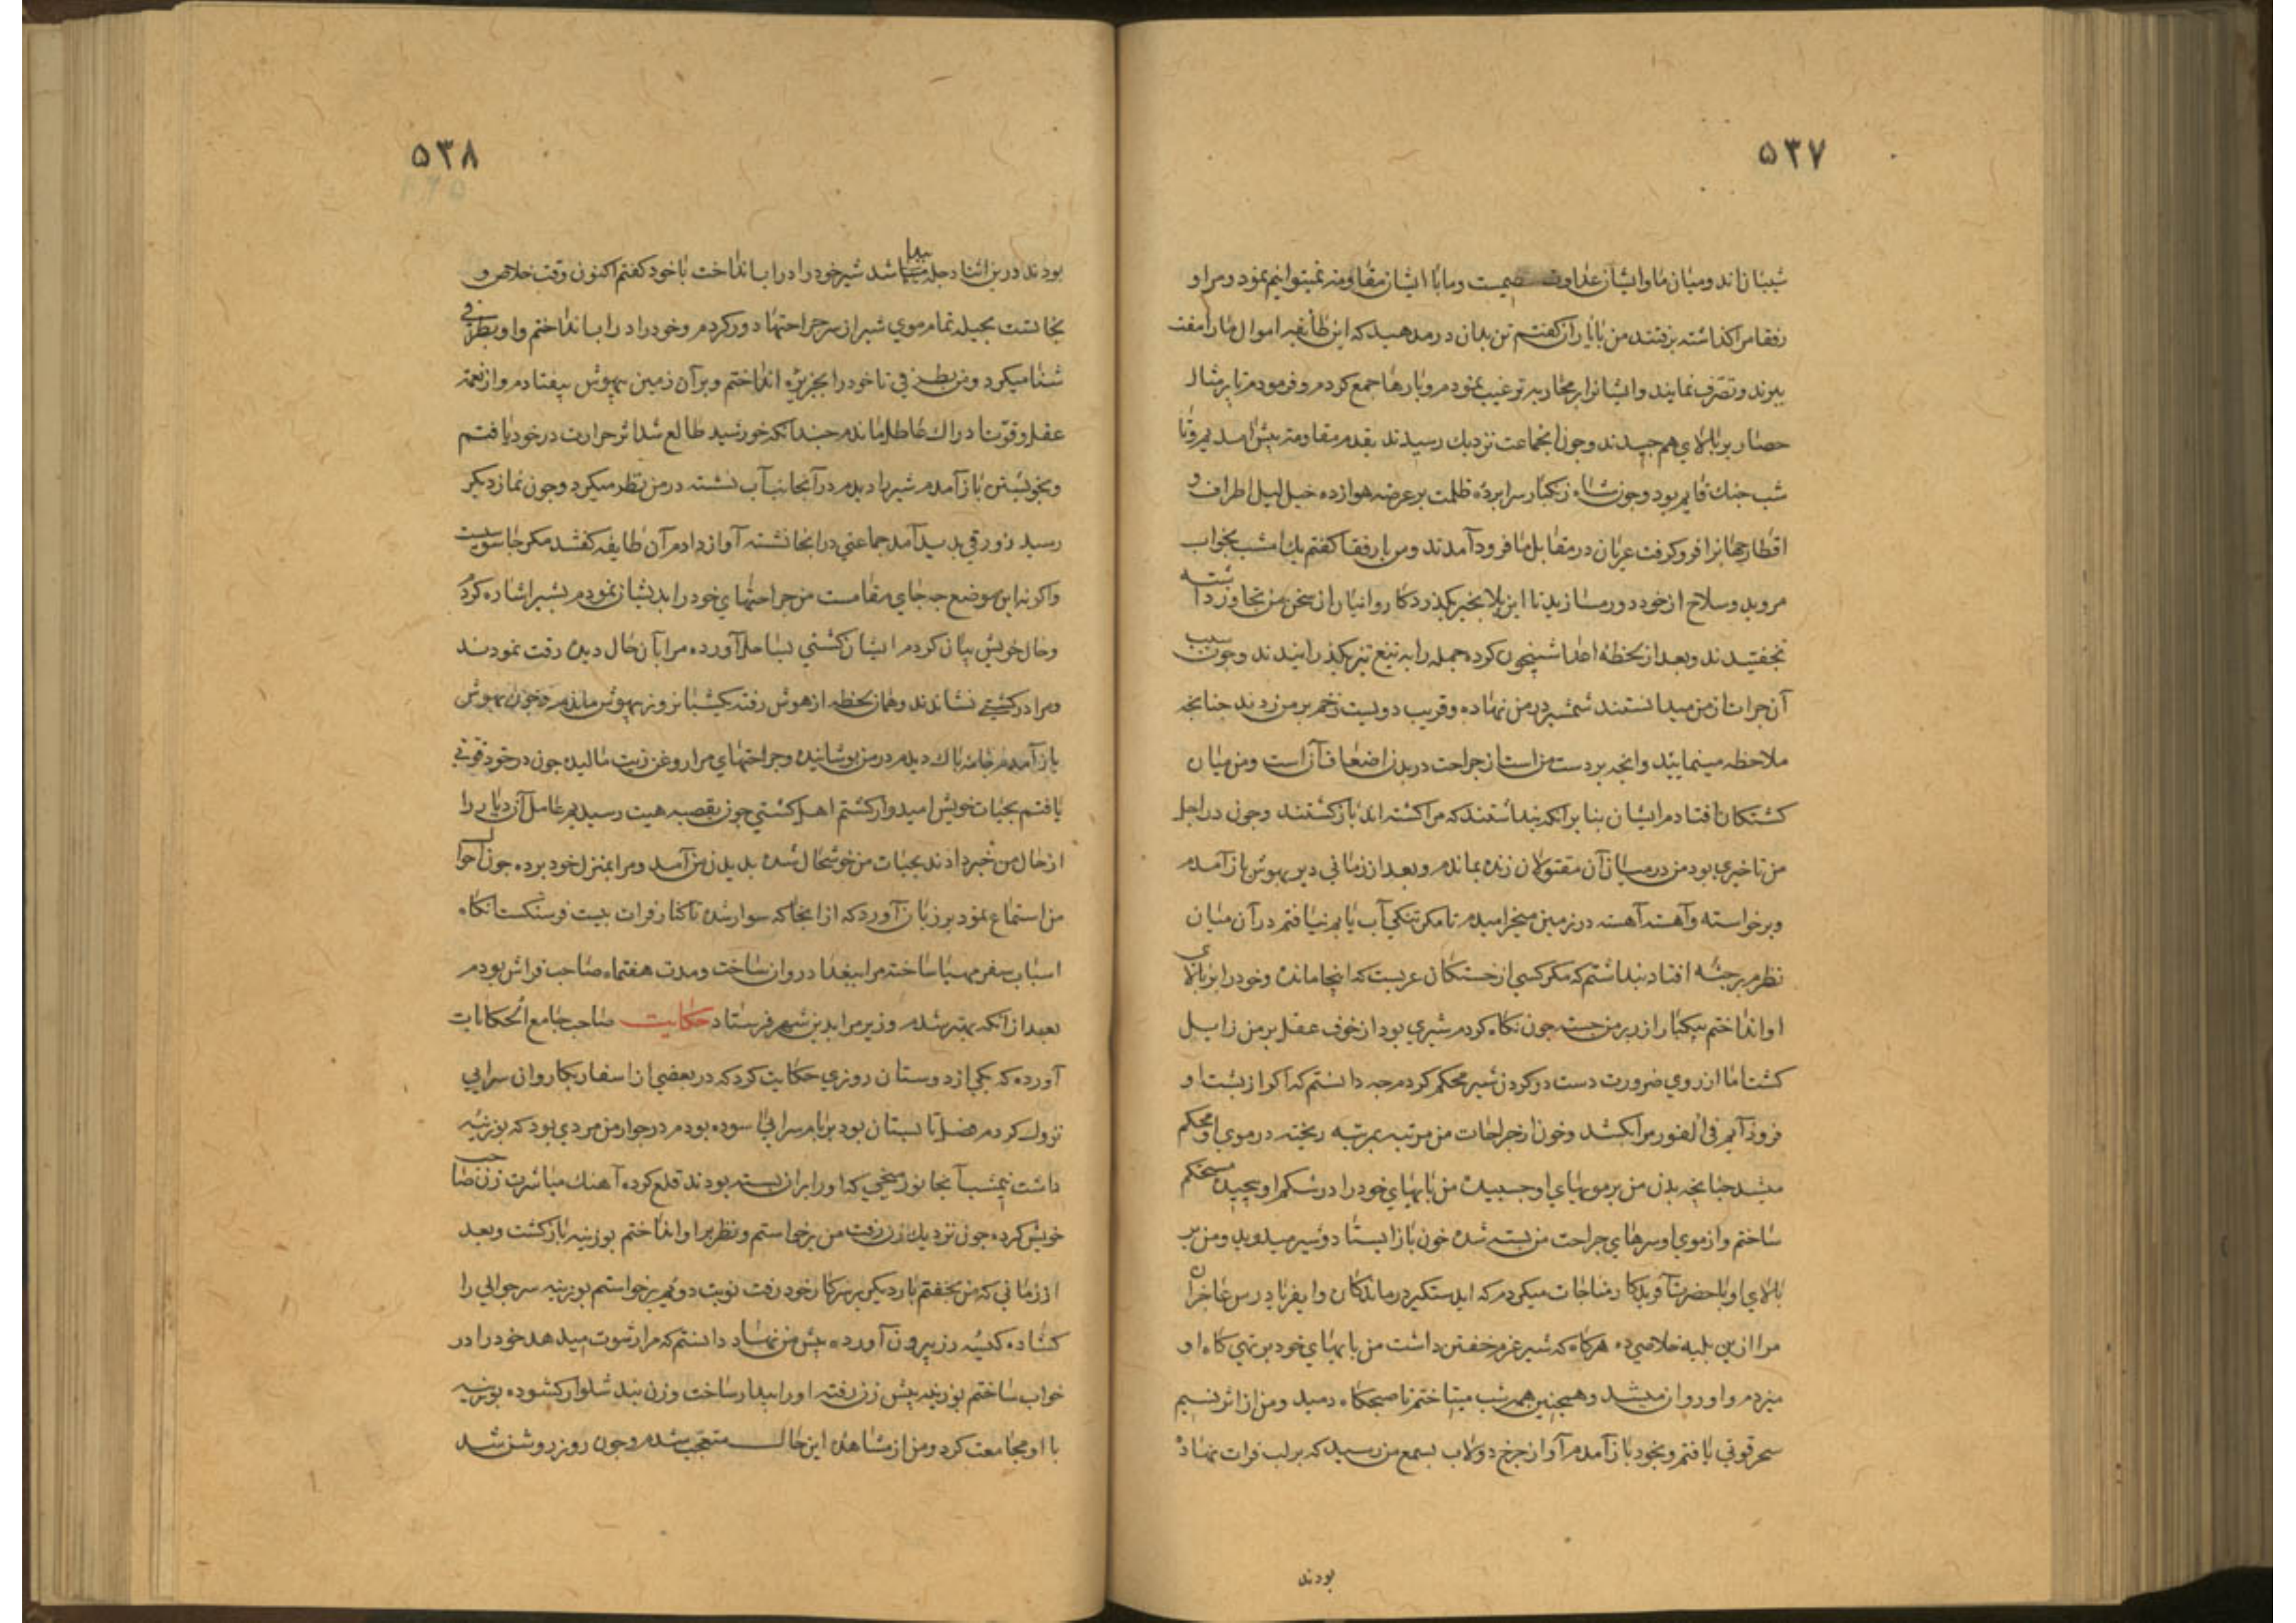 ۵۳۷
شیبان اند و میان ما و ایشان عداوت صمیمیست و ما با ایشان مقاومه نمیتوانیم نمود و مرا و
رفقا مرا کذاشته برفتند من با یاران کفتم تن بدان در مدهید که این طایفه اموال ما را مفت
ببرند و تصرف نمایند و ایشانرا بر محاربه ترغیب نمودم و بارها جمع کردم و فرمودم تا بر مثال
حصار بر بالای هم چیدند و چون آنجماعت نزدیک رسیدند بقدم مقاومة پیش آمدیم و تا
شب جنك قایم بود و چون شاه زنکبار سرا پرده ظلمت بر عرصه هوا زده خیل لیل اطراف و
اقطار جهانرا فرو کرفت عربان در مقابل ما فرود آمدند و من با رفقا کفتم یك امشب بخواب
مروید و سلاح از خود دور مسازید تا این بلا بخیر بکذرد کاروانیان از سخن من تجاوز داشته
بخفتیدند و بعد از لحظه اعدا شبیخون کرده جمله را به تیغ تیز بکذرانیدند و چون سبب
آن جرات از من میدانستند شمشیر در من نهاده و قریب دویست زخم بر من زدند چنانچه
ملاحظه مینمایید و آنچه بر دست من است از جراحت در بدن اضعاف آن است و من میان
کشتکان افتادم ایشان بنا بر آنکه پنداشتند که مرا کشته اند باز کشتند و چون در اجل
من تاخیری بود من در میان آن مقتولان زنده بماندم و بعد از زمانی دیر بهوش باز آمدم
و برخواسته و آهسته آهسته در زمین میخرامیدم تا مکر تنکی آب یابم نیافتم در آن میان
نظرم بر جثه افتاد پنداشتم که مکر کسی از خستکان عربست که اینجا مانده و خود را بر بالای
او انداختم بیکبار از زیر من جسته چون نکاه کردم شیری بود از خوف عقل بر من زایل
کشت اما از روی ضرورت دست در کردن شیر محکم کردم چه دانستم که اکر از پشت او
فرود آیم فی الفور مرا بکشد و خون از جراحات من مرتبه بمرتبه ریخته در موی او محکم
میشد چنانچه بدن من بر مویهای او چسبیده من پایهای خود را در شکم او پیچیده مستحکم
ساختم و از موی او سرهای جراحت من بسته شده خون باز ایستاد و شیر میدوید و من بر
بالای او با حضرت آفریدکار مناجات میکردم که ای دستکیر درماندکان و ای فریادرس عاجزان
مرا ازین بلیه خلاصی ده هرکاه که شیر عزم خفتن داشت من پایهای خود بر تهی کاه او
میزدم و او روان میشد و همچنین همه شب میتاختم تا صبحکاه دمید و من از اثر نسیم
سحر قوتی یافتم و بخود باز آمدم آواز چرخ دولاب بسمع من رسید که بر لب فرات نهاده
بودند
۵۳۸
بودند درین اثنا دجله پیدا شد شیر خود را در اب انداخت با خود کفتم اکنون وقت خلاص و
نجاتست بحیله تمام موی شیر از سر جراحتها دور کردم و خود را در اب انداختم و او بطرفی
شنا میکرد و من بطرفی تا خود را بجزیره انداختم و بر آن زمین بیهوش بیفتادم و از نعمة
عقل و قوت ادراك عاطل ماندم چندانکه خورشید طالع شد اثر حرارت در خود یافتم
و بخویشتن باز آمدم شیر را دیدم در آنجانب آب نشسته در من نظر میکرد و چون نماز دیکر
رسید زورقی پدید آمد جماعتی در انجا نشسته آواز دادم آن طایفه کفتند مکر جاسوسیست
و اکر نه این موضع چه جای مقامست من جراحتهای خود را بدیشان نمودم بشیر اشاره کردم
و حال خویش بیان کردم ایشان کشتی بساحل آورده مرا بآن حال دیده رقت نمودند
و مرا در کشتی نشاندند و همان لحظه از هوش رفته یکشبانروز بیهوش ماندم و چون بهوش
باز آمدم جامه پاك دیدم در من پوشانیده و جراحتهای مرا روغن زیت مالیده چون در خود قوتی
یافتم بحیات خویش امیدوار کشتم اهل کشتی چون بقصبه هیت رسیدیم عامل آن دیار را
از حال من خبر دادند بحیات من خوشحال شده بدیدن من آمد و مرا بمنزل خود برده چون احوال
من استماع نمود بر زبان آورد که از انجا که سوار شدۀ تا کنار فرات بیست فرسنکست انکاه
اسباب سفر مهیا ساخته مرا ببغداد روان ساخت و مدت هفتماه صاحب فراش بودم
بعد از انکه بهتر شدم وزیر مرا بدین شهر فرستاد حکایت صاحب جامع الحکایات
آورده که یکی از دوستان روزی حکایت کرد که در بعضی از اسفار بکاروان سرایی
نزول کردم فصل تابستان بود بر بام سرایی آسوده بودم در جوار من مردی بود که بوزینه
داشت نیمشب آنجانور میخی که او را بر آن بسته بودند قلع کرده آهنك مباشرت زن صاحب
خویش کرده چون نزدیك زن رفت من برخواستم و نظر بر او انداختم بوزینه باز کشت و بعد
از زمانی که من بخفتم بار دیکر بر سر کار خود رفت نوبت دویم برخواستم بوزینه سر جوالی را
کشاده کیسه زر بیرون آورده پیش من نهاد دانستم که مرا رشوت میدهد خود را در
خواب ساختم بوزینه پیش زن رفته او را بیدار ساخت و زن بند شلوار کشوده بوزینه
با او مجامعت کرد و من از مشاهده این حال متعجب شدم و چون روز روشن شد